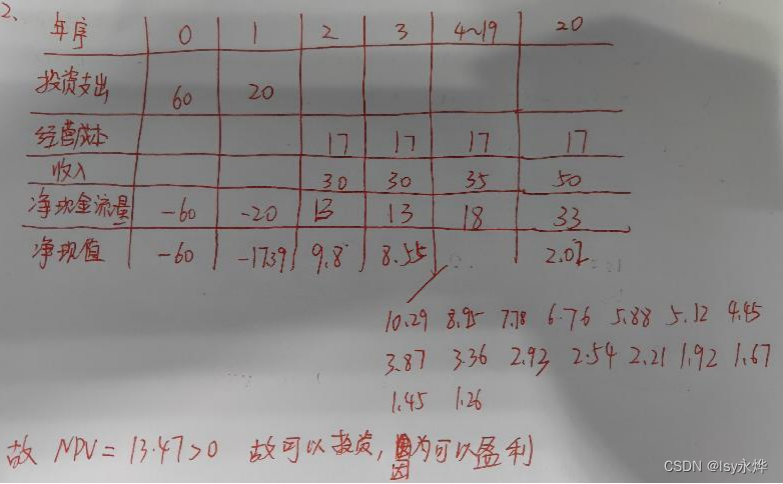 2、
年序 0 1 2 3 4~19 20
投资支出 60 20
经营成本 17 17 17 17
收入 30 30 35 50
净现金流量 -60 -20 13 13 18 33
净现值 -60 -17.39 9.8 8.55 2.02
10.29 8.95 7.78 6.76 5.88 5.12 4.45
3.87 3.36 2.93 2.54 2.21 1.92 1.67
1.45 1.26
故 NPV = 13.47>0 故可以投资, 因为可以盈利
CSDN @lsy永烨